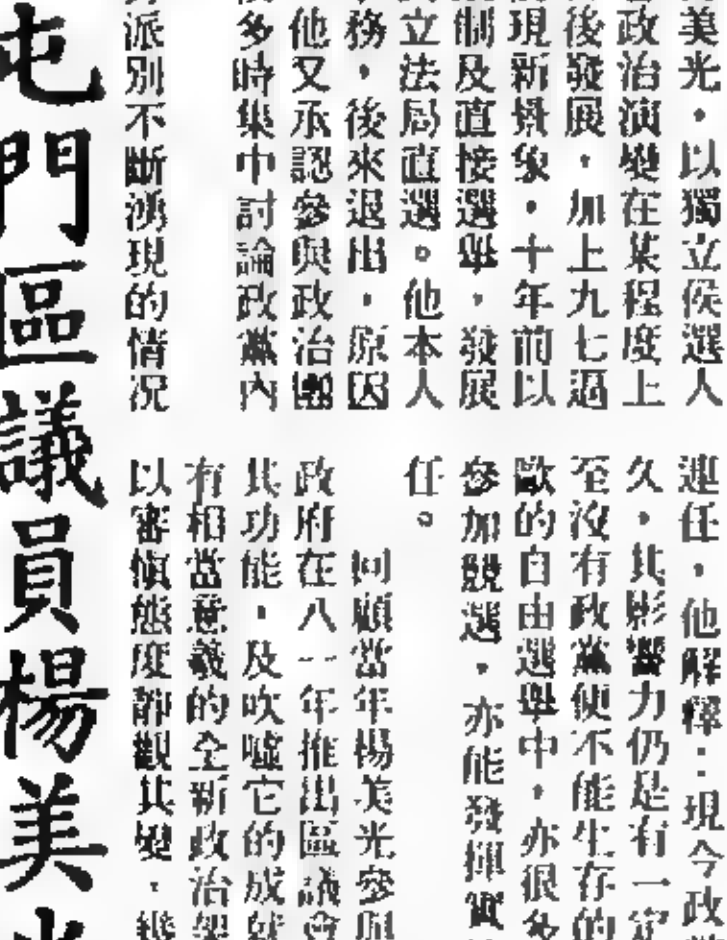 美光，以獨立候選人
政治演變在某程度上
後發展，加上九七逼
現新景象，十年前以
制及直接選舉，發展
立法局直選。他本人
務，後來退出，原因
他又承認參與政治團
多時集中討論政黨內
派別不斷湧現的情況
連任，他解釋：現今政
久，其影響力仍是有一定
至沒有政黨便不能生存的
歐的自由選舉中，亦很多
參加競選，亦能發揮實
任。
回顧當年楊美光參與
政府在八一年推出區議會
其功能，及吹噓它的成就
有相當意義的全新政治架
以審慎態度靜觀其變，幾
屯門區議員楊美光